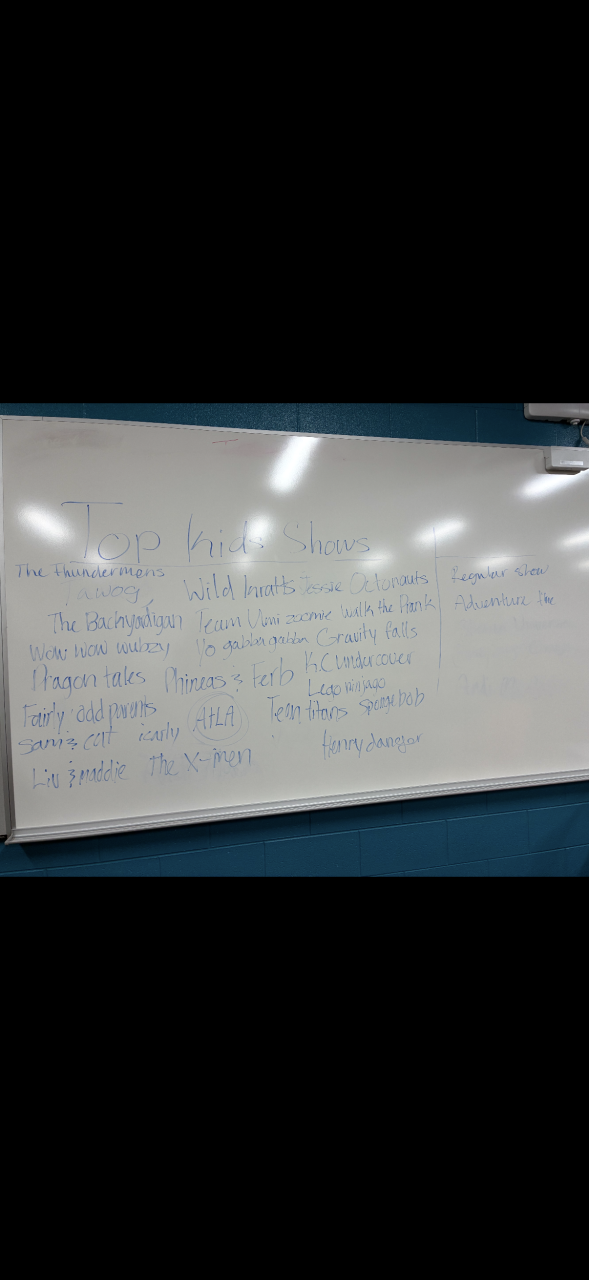 Top Kids Shows
The Thundermans
TAWOG, Wild Kratts Jessie Octonauts
The Backyardigan Team Umi zoomie Walk the Plank
Wow wow wubzy Yo gabba gabba Gravity falls
Dragon tales Phineas & Ferb K.C undercover
Lego ninjago
Fairly odd parents ATLA Teen titans spongebob
Sam & cat icarly
Liv & maddie The X-men Henry danger
Regular show
Adventure time